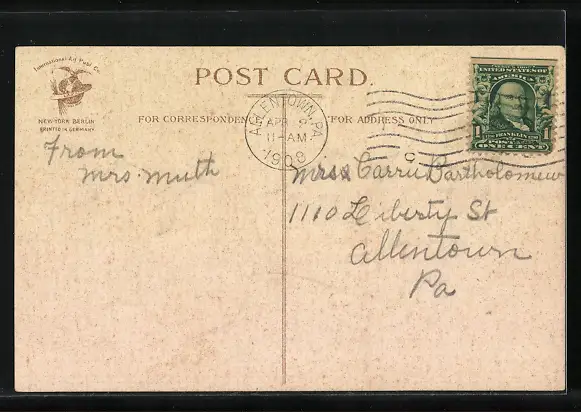 International Art Post Co.
NEW-YORK BERLIN
PRINTED IN GERMANY
POST CARD.
FOR CORRESPONDEN
FOR ADDRESS ONLY
ALLENTOWN, PA.
APR
11-AM
1908
UNITED STATES OF
AMERICA
1 FRANKLIN 1
POSTAGE
ONE CENT
From
Mrs. Muth
Miss Carrie Bartholomew
1110 Liberty St
Allentown
Pa